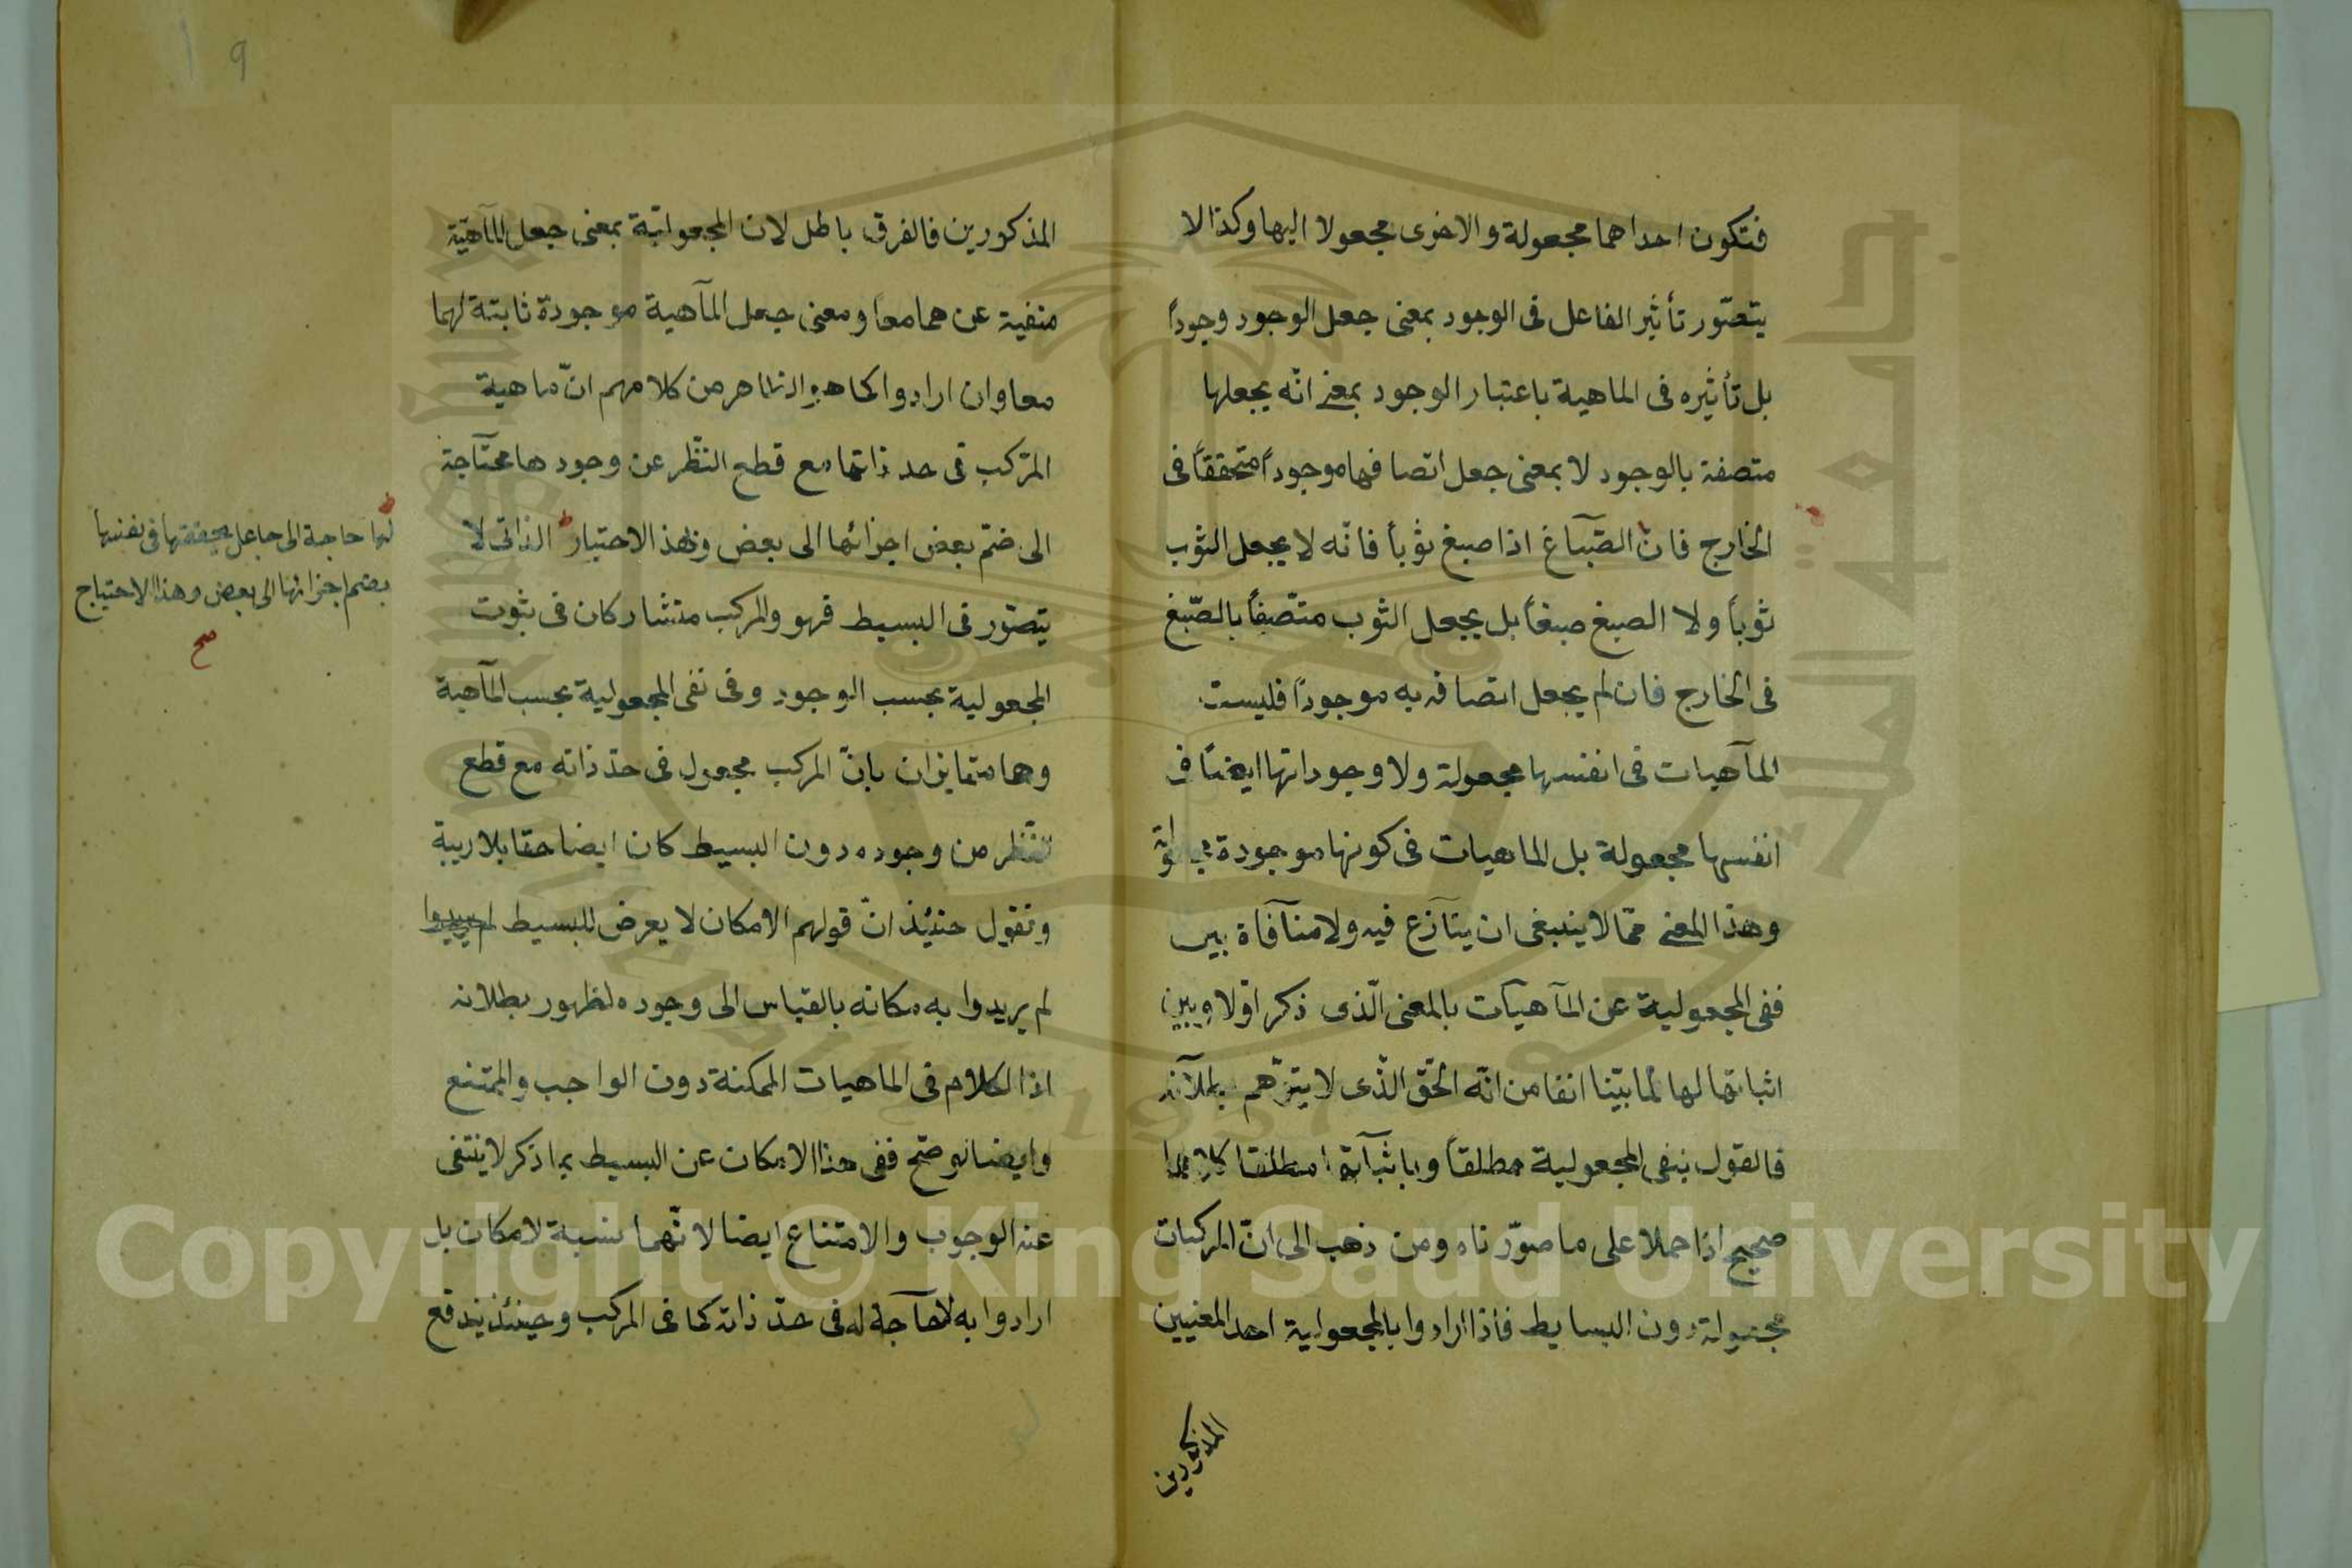 فتكون احداهما مجعولة والاخرى مجعولا اليها وكذا لا
يتصّور تأثير الفاعل فى الوجود بمعنى جعل الوجود وجوداً
بل تأثيره فى الماهية باعتبار الوجود بمعنى انّه يجعلها
متصفة بالوجود لا بمعنى جعل اتصافها موجوداً متحققاً فى
الخارج فان الصّباغ اذا صبغ ثوباً فانّه لا يجعل الثوب
ثوباً ولا الصبغ صبغاً بل يجعل الثوب متّصفاً بالصّبغ
فى الخارج فان لم يجعل اتصافه به موجوداً فليست
المآهيات فى انفسها مجعولة ولا وجوداتها ايضاً فى
انفسها مجعولة بل الماهيات فى كونها موجودة مجعولة
وهذا المعنى ممّا لا ينبغى ان يتآزع فيه ولا منآفاة بين
نفى المجعولية عن المآهيآت بالمعنى الّذى ذكر اوّلا وبين
اثباتها لها لما بيّنا انفا من انّه الحق الذّى لا يتوّهم بطلآنه
فالقول بنفى المجعولية مطلقاً وباثبآتها مطلقا كلاهما
صحيح اذا حملا على ما صوّرناه ومن ذهب الى انّ المركبات
مجعولة دون البسايط فاذا ارادوا بالمجعولية احد المعنيين
المذكورين
١٩
المذكورين فالفرق باطل لان المجعوليّة بمعنى جعل المآهيّة
منفية عن هما معا ومعنى جعل المآهية موجودة ثابتة لهما
معا وان ارادوا كما هو الظاهر من كلامهم انّ ماهية
المرّكب فى حد ذاتها مع قطع النظّر عن وجودها محتآجة
الى ضمّ بعض اجزائها الى بعض وهذ الاحتيار الذاتى لا
يتصّور فى البسيط فهو والمركب متشاركان فى ثبوت
المجعولية بحسب الوجود وفى نفى المجعولية بحسب المآهية
وهما متمايزان بانّ المركب مجعول فى حدّ ذاته مع قطع
النّظر من وجوده دون البسيط كان ايضا حقا بلا ريبة
ونقول حنيئذ انّ قولهم الامكان لا يعرض للبسيط لم يريدوا
لم يريدوا به مكانه بالقياس الى وجوده لظهور بطلانه
اذا الكلام فى الماهيات الممكنة دون الواجب والممتنع
وايضا لو صّح نفى هذا الامكان عن البسيط بما ذكر لا ينتفى
عنه الوجوب والامتناع ايضا لانّهما نسبة لامكان بل
ارادوا به لا حآجة له فى حدّ ذاته كما فى المركب وحينئذ يندفع
لها حاجة الى جاعل يحققها فى نفسها
بضم اجزائها الى بعض وهذا الاحتياج
صح
Copyright © King Saud University
جامعة الملك سعود
King Saud University
1957